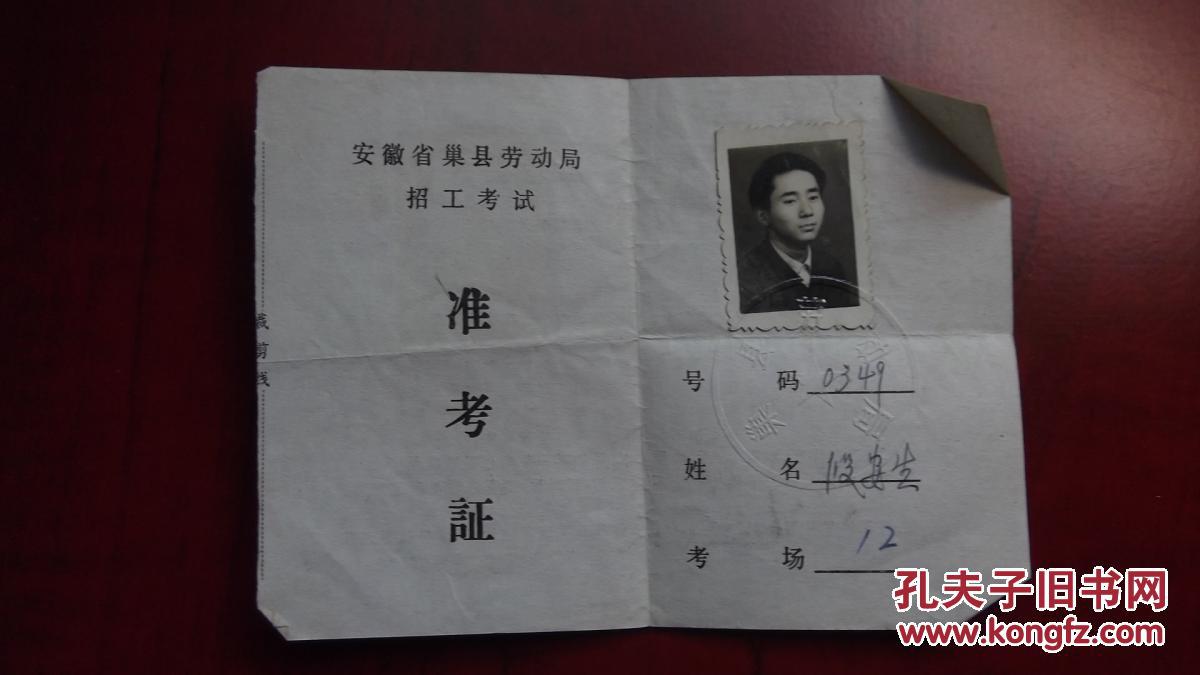 安徽省巢县劳动局
招工考试
准
考
証
裁剪线
号码 0349
姓名 段安生
考场 12
孔夫子旧书网
www.kongfz.com